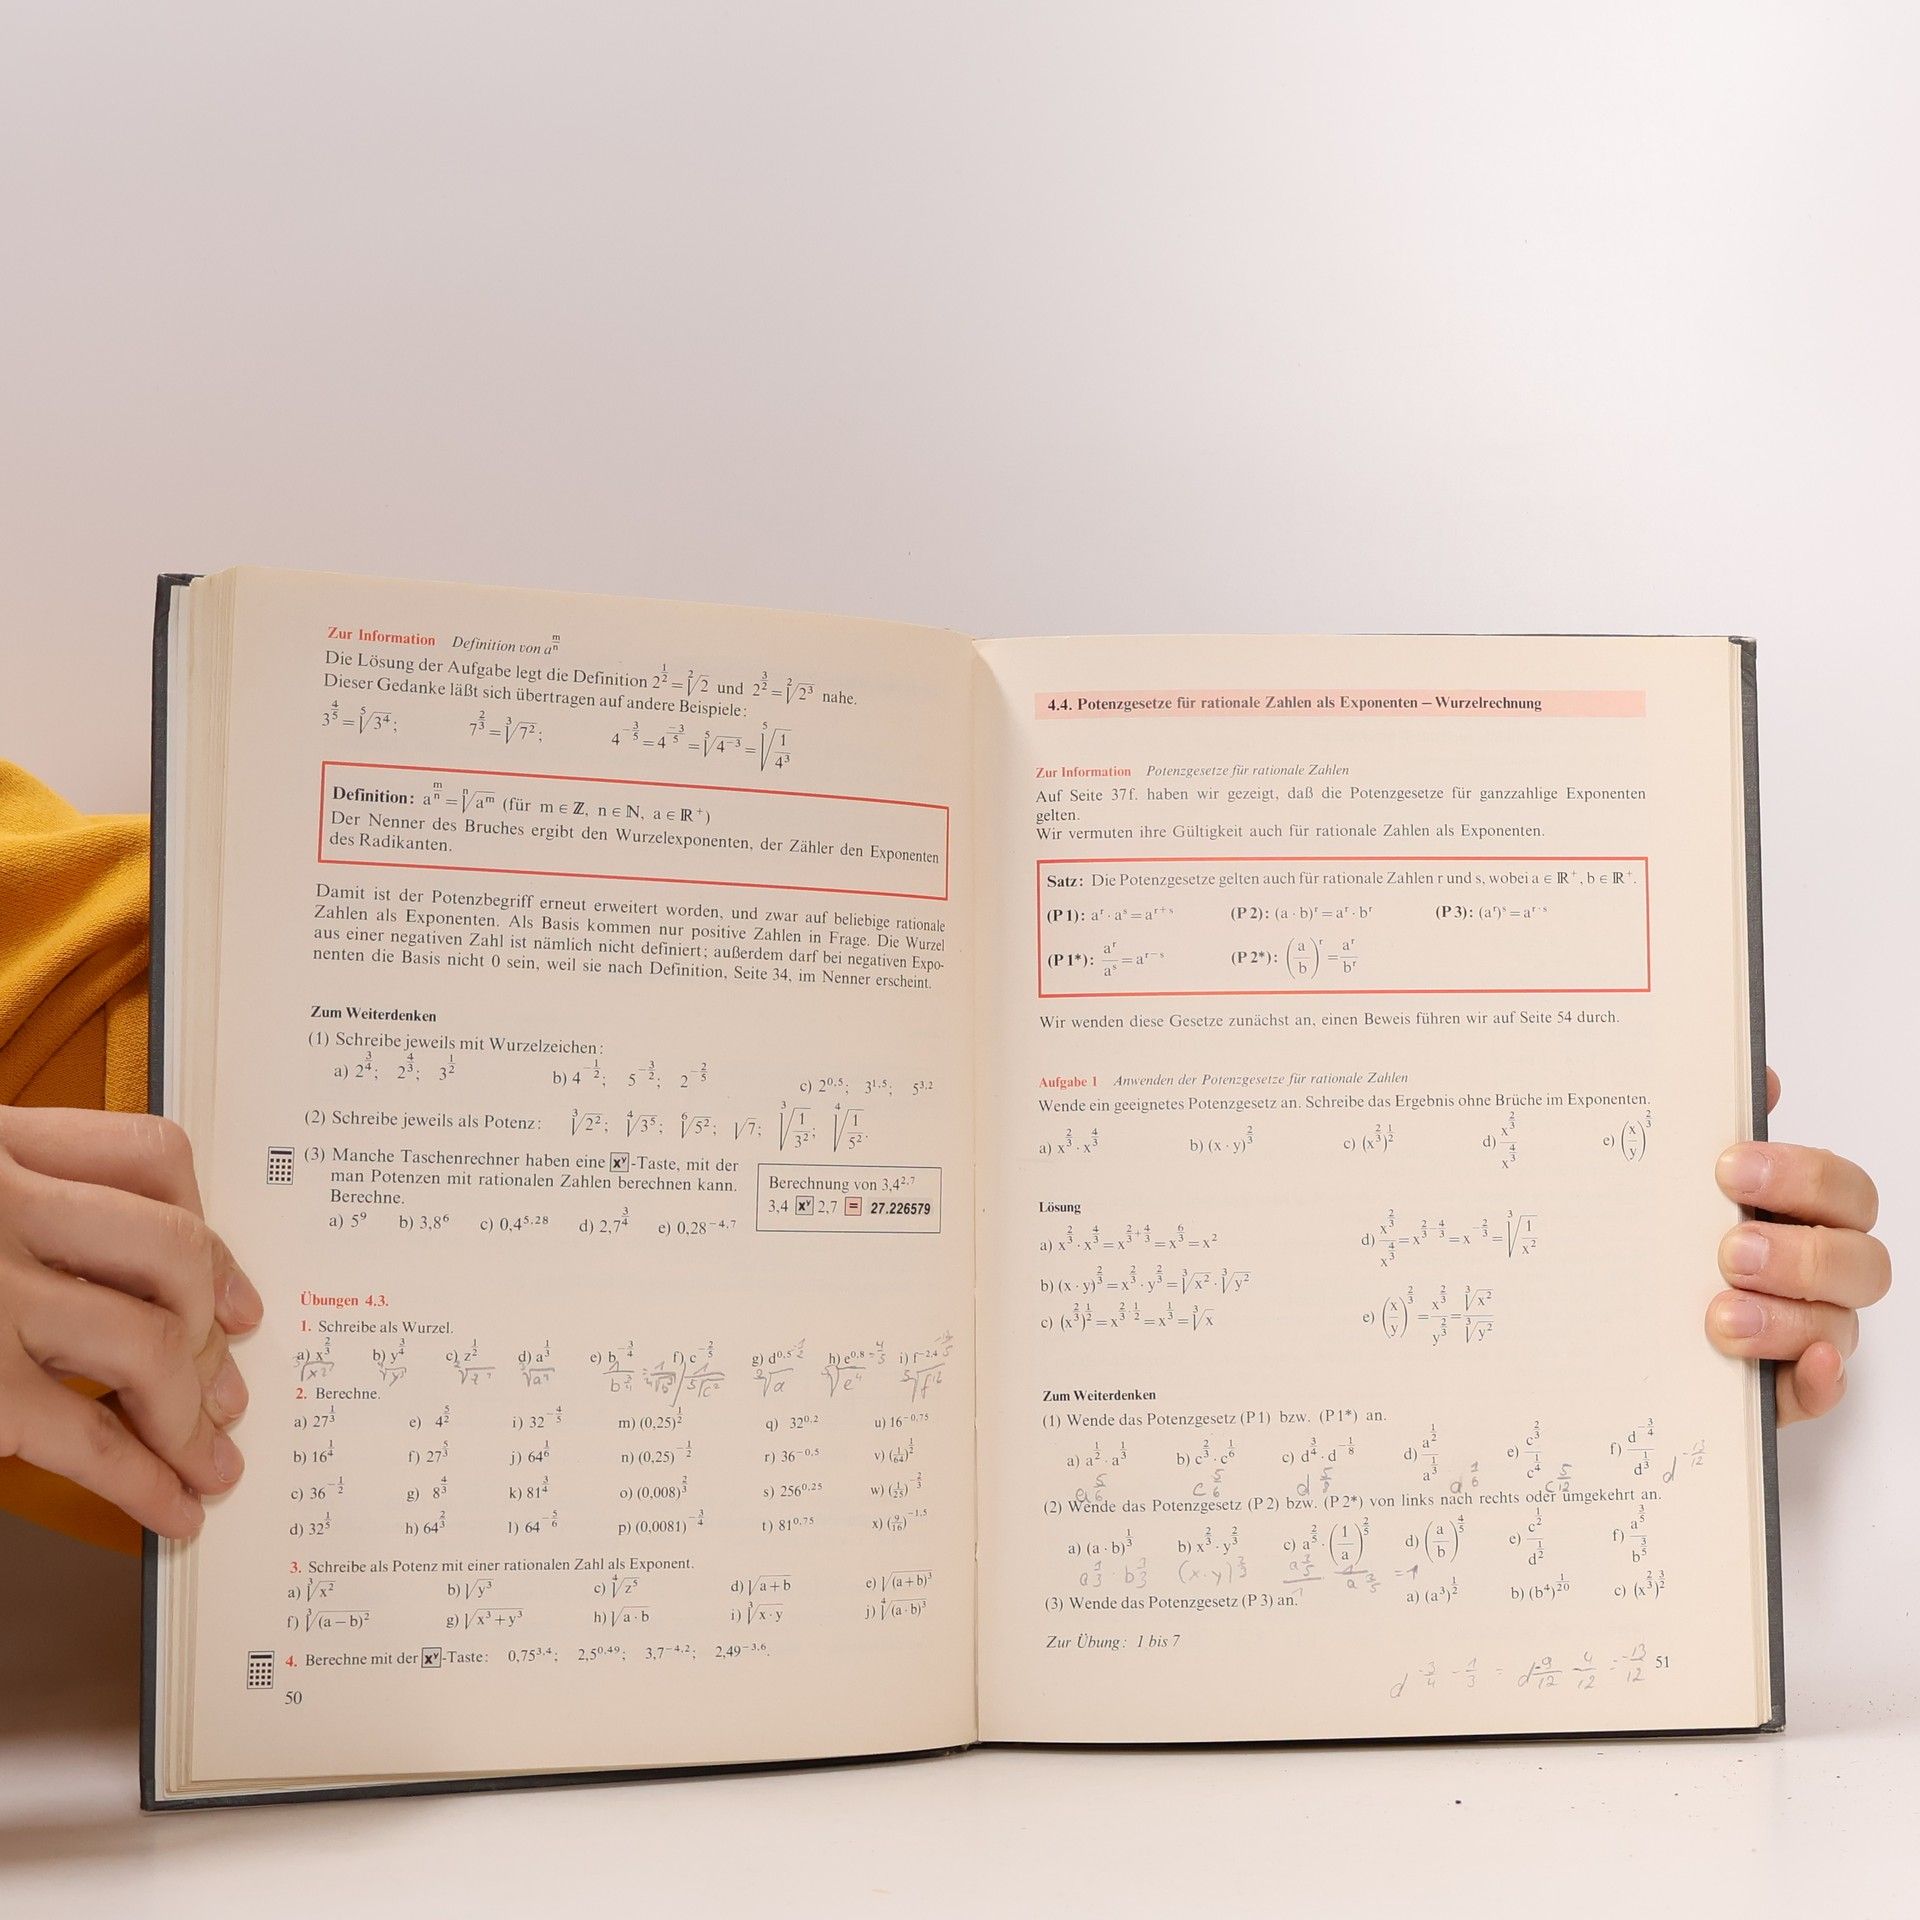 Zur Information Definition von a^(m/n)
Die Lösung der Aufgabe legt die Definition 2^(1/2) = ²√2 und 2^(3/2) = ²√2³ nahe.
Dieser Gedanke läßt sich übertragen auf andere Beispiele:
3^(4/5) = ⁵√3⁴; 7^(2/3) = ³√7²; 4^(-3/5) = 4^(-3/5) = ⁵√4⁻³ = ⁵√(1/4³)
Definition: a^(m/n) = ⁿ√a^m (für m ∈ ℤ, n ∈ ℕ, a ∈ ℝ⁺)
Der Nenner des Bruches ergibt den Wurzelexponenten, der Zähler den Exponenten
des Radikanten.
Damit ist der Potenzbegriff erneut erweitert worden, und zwar auf beliebige rationale
Zahlen als Exponenten. Als Basis kommen nur positive Zahlen in Frage. Die Wurzel
aus einer negativen Zahl ist nämlich nicht definiert; außerdem darf bei negativen Expo-
nenten die Basis nicht 0 sein, weil sie nach Definition, Seite 34, im Nenner erscheint.
Zum Weiterdenken
(1) Schreibe jeweils mit Wurzelzeichen:
a) 2^(3/4); 2^(4/3); 3^(1/2) b) 4^(-1/2); 5^(-3/2); 2^(-2/5) c) 2^0,5; 3^1,5; 5^3,2
(2) Schreibe jeweils als Potenz: ³√2²; ⁴√3⁵; ⁶√5²; √7; ³√(1/3²); ⁴√(1/5²).
(3) Manche Taschenrechner haben eine x^y-Taste, mit der
man Potenzen mit rationalen Zahlen berechnen kann.
Berechne.
a) 5⁹ b) 3,8⁶ c) 0,4^5,28 d) 2,7^(3/4) e) 0,28^-4,7
Berechnung von 3,4^2,7
3,4 x^y 2,7 = 27.226579
Übungen 4.3.
1. Schreibe als Wurzel.
a) x^(2/3) b) y^(3/4) c) z^(1/2) d) a^(1/3) e) b^(-3/4) f) c^(-2/5) g) d^0,5 h) e^0,8 i) f^-2,4
2. Berechne.
a) 27^(1/3) e) 4^(5/2) i) 32^(-4/5) m) (0,25)^(1/2) q) 32^0,2 u) 16^-0,75
b) 16^(1/4) f) 27^(5/3) j) 64^(1/6) n) (0,25)^(-1/2) r) 36^-0,5 v) (1/64)^(1/2)
c) 36^(-1/2) g) 8^(4/3) k) 81^(3/4) o) (0,008)^(2/3) s) 256^0,25 w) (1/25)^(-2/3)
d) 32^(1/5) h) 64^(2/3) l) 64^(-5/6) p) (0,0081)^(-3/4) t) 81^0,75 x) (9/16)^-1,5
3. Schreibe als Potenz mit einer rationalen Zahl als Exponent.
a) ³√x² b) √y³ c) ⁴√z⁵ d) √(a+b) e) √(a+b)³
f) ³√(a−b)² g) √(x³+y³) h) √(a·b) i) ³√(x·y) j) ⁴√(a·b)³
4. Berechne mit der x^y-Taste: 0,75^3,4; 2,5^0,49; 3,7^-4,2; 2,49^-3,6.
50
4.4. Potenzgesetze für rationale Zahlen als Exponenten – Wurzelrechnung
Zur Information Potenzgesetze für rationale Zahlen
Auf Seite 37f. haben wir gezeigt, daß die Potenzgesetze für ganzzahlige Exponenten
gelten.
Wir vermuten ihre Gültigkeit auch für rationale Zahlen als Exponenten.
Satz: Die Potenzgesetze gelten auch für rationale Zahlen r und s, wobei a ∈ ℝ⁺, b ∈ ℝ⁺.
(P1): a^r · a^s = a^(r+s) (P2): (a · b)^r = a^r · b^r (P3): (a^r)^s = a^(r·s)
(P1*): a^r/a^s = a^(r−s) (P2*): (a/b)^r = a^r/b^r
Wir wenden diese Gesetze zunächst an, einen Beweis führen wir auf Seite 54 durch.
Aufgabe 1 Anwenden der Potenzgesetze für rationale Zahlen
Wende ein geeignetes Potenzgesetz an. Schreibe das Ergebnis ohne Brüche im Exponenten.
a) x^(2/3) · x^(4/3) b) (x · y)^(2/3) c) (x^(2/3))^(1/2) d) x^(2/3)/x^(4/3) e) (x/y)^(2/3)
Lösung
a) x^(2/3) · x^(4/3) = x^(2/3+4/3) = x^(6/3) = x² d) x^(2/3)/x^(4/3) = x^(2/3−4/3) = x^(−2/3) = ³√(1/x²)
b) (x · y)^(2/3) = x^(2/3) · y^(2/3) = ³√x² · ³√y²
c) (x^(2/3))^(1/2) = x^(2/3·1/2) = x^(1/3) = ³√x e) (x/y)^(2/3) = x^(2/3)/y^(2/3) = ³√x²/³√y²
Zum Weiterdenken
(1) Wende das Potenzgesetz (P1) bzw. (P1*) an.
a) a^(1/2) · a^(1/3) b) c^(2/3) · c^(1/6) c) d^(3/4) · d^(-1/8) d) a^(1/2)/a^(1/3) e) c^(2/3)/c^(1/4) f) d^(-3/4)/d^(1/3) d^(-13/12)
a^(5/6) c^(5/6) d^(5/8) a^(1/6) c^(5/12)
(2) Wende das Potenzgesetz (P2) bzw. (P2*) von links nach rechts oder umgekehrt an.
a) (a · b)^(1/3) b) x^(2/3) · y^(2/3) c) a^(2/5) · (1/a)^(2/5) d) (a/b)^(4/5) e) c^(1/2)/d^(1/2) f) a^(3/5)/b^(3/5)
a^(1/3) · b^(1/3) (x·y)^(2/3)
(3) Wende das Potenzgesetz (P3) an. a) (a³)^(1/2) b) (b⁴)^(1/20) c) (x^(2/3))^(3/2)
Zur Übung: 1 bis 7
d^(-3/4 - 1/3) = d^(-9/12 - 4/12) = -13/12
51